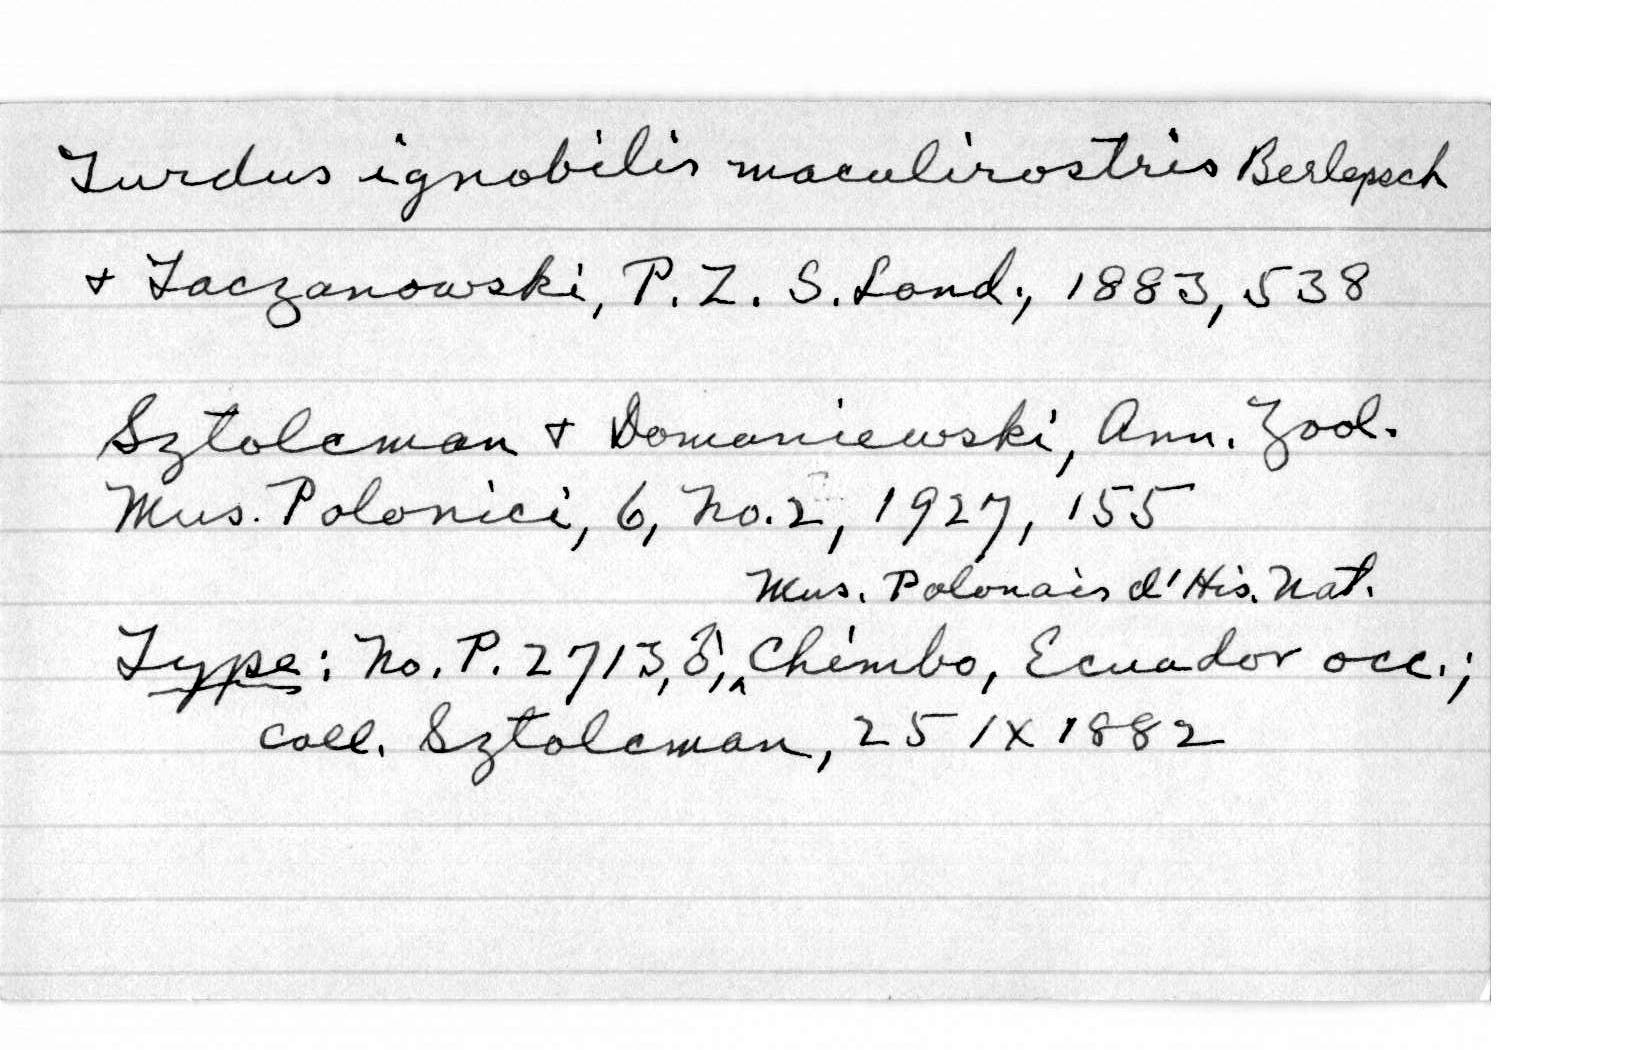 Turdus ignobilis maculirostris Berlepsch
+ Taczanowski, P. Z. S. Lond., 1883, 538
Sztolcman + Domaniewski, Ann. Zool.
Mus. Polonici, 6, No. 2, 1927, 155
Mus. Polonais d'His. Nat.
Type: No. P. 2713, ♂, ^ Chimbo, Ecuador occ.;
coll. Sztolcman, 25 IX 1882